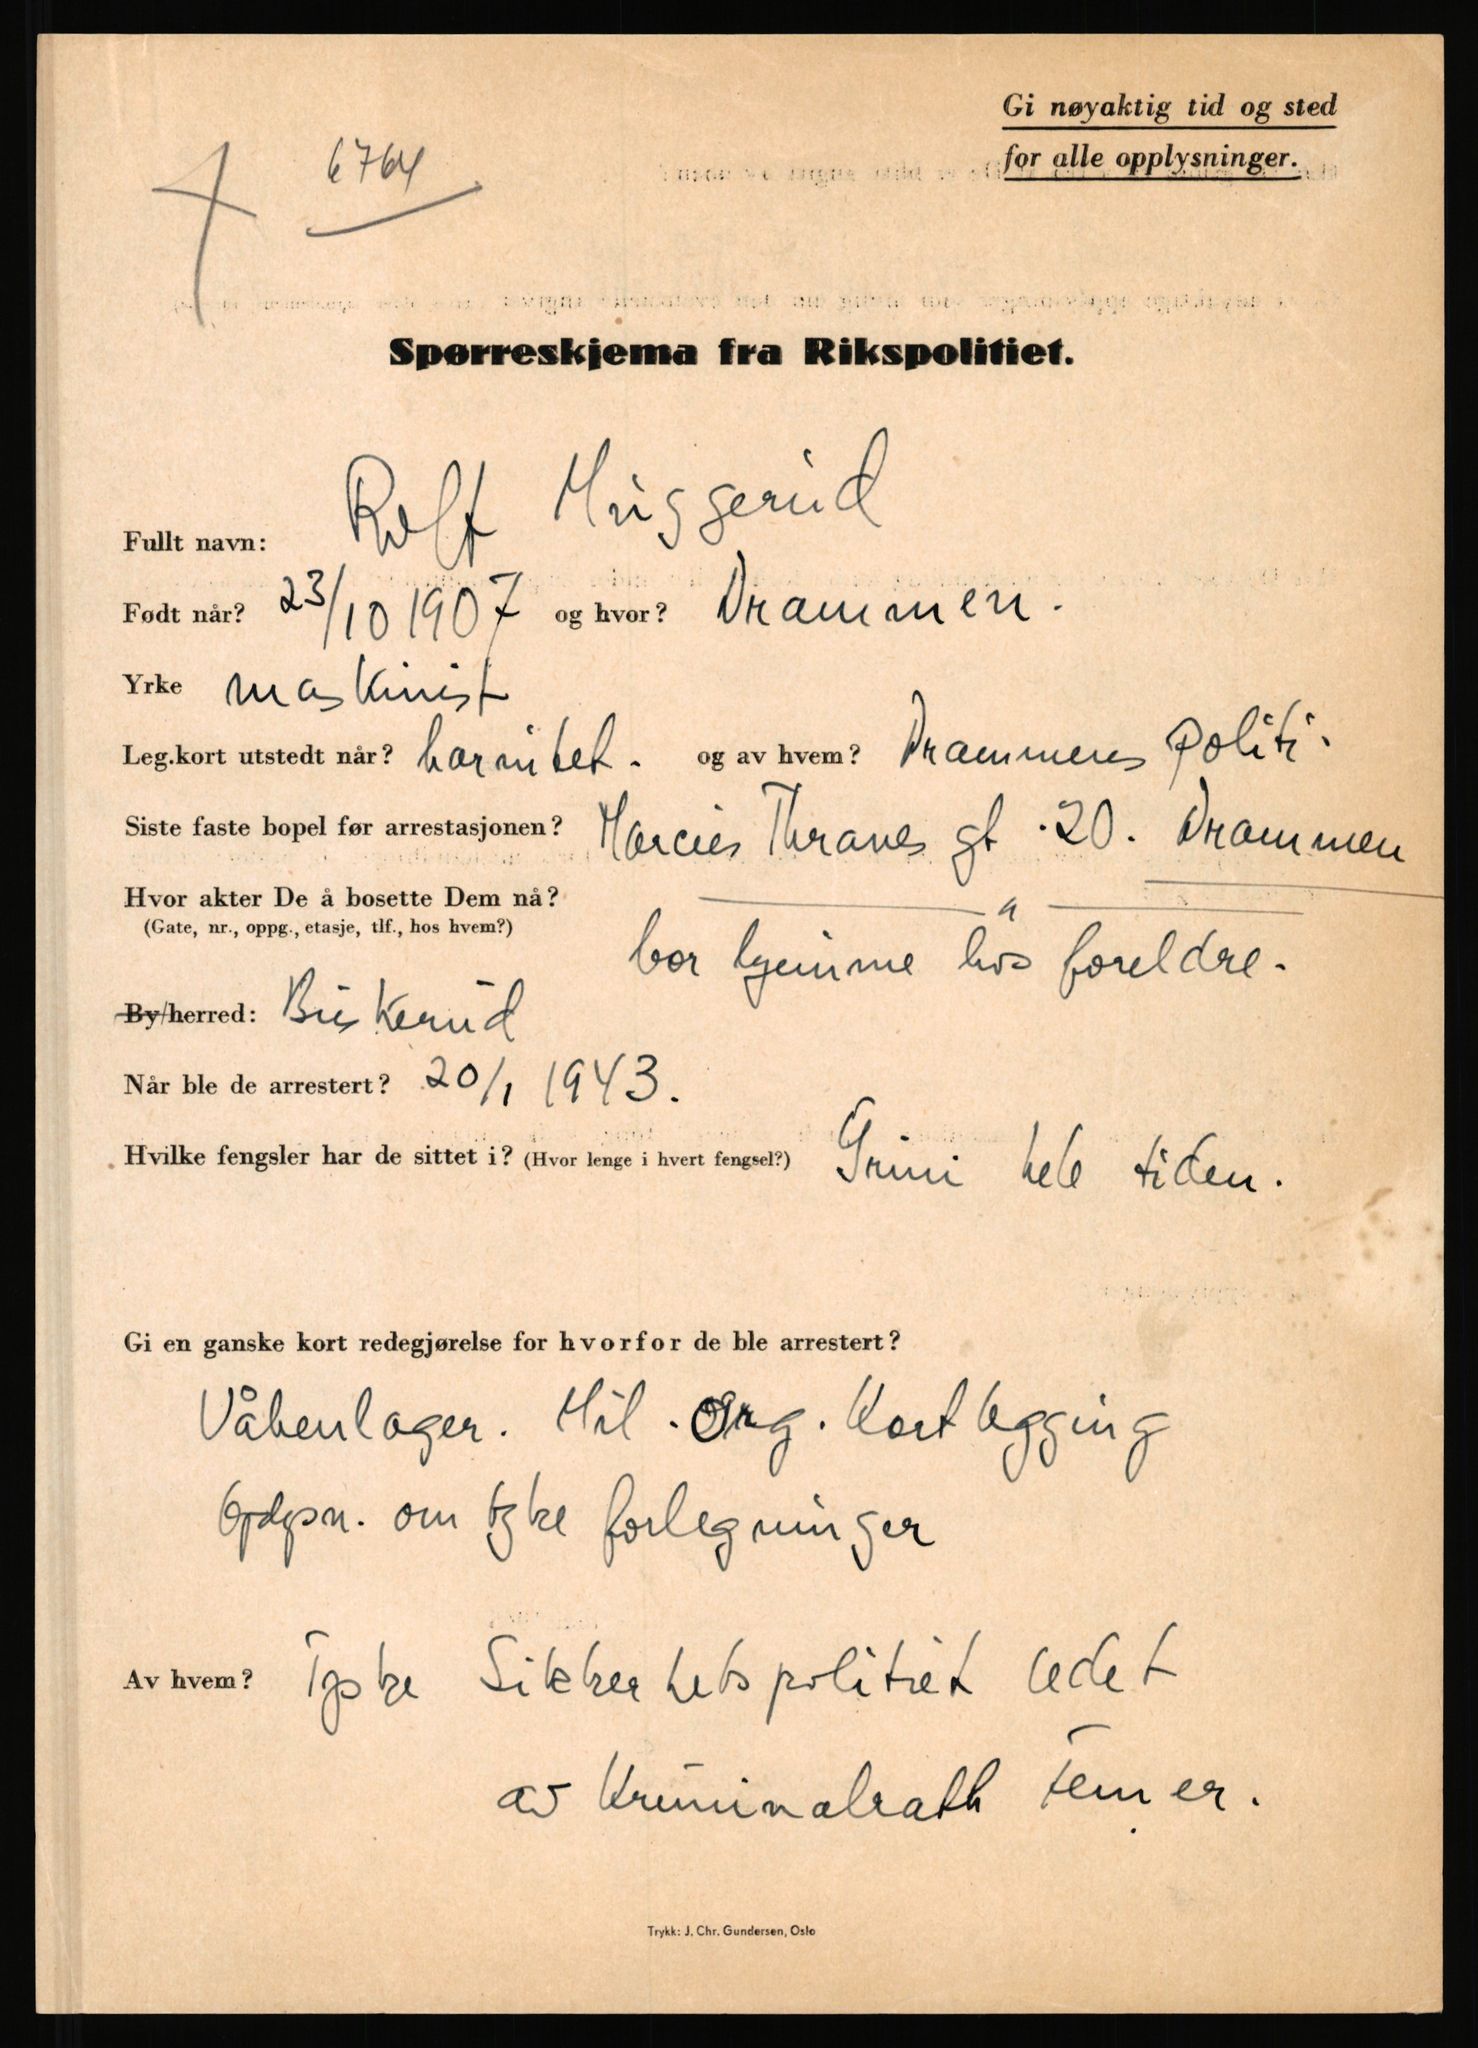 Gi nøyaktig tid og sted
for alle opplysninger.
6764
Spørreskjema fra Rikspolitiet.
Fullt navn: Rolf Muggerud
Født når? 23/10 1907 og hvor? Drammen.
Yrke maskinist
Leg.kort utstedt når? har intet. og av hvem? Drammens politi.
Siste faste bopel før arrestasjonen? Marcus Thranes gt. 20. Drammen
Hvor akter De å bosette Dem nå? — " —
(Gate, nr., oppg., etasje, tlf., hos hvem?) bor hjemme hos foreldre.
By/herred: Buskerud
Når ble de arrestert? 20/1 1943.
Hvilke fengsler har de sittet i? (Hvor lenge i hvert fengsel?) Grini hele tiden.
Gi en ganske kort redegjørelse for hvorfor de ble arrestert?
Våbenlager. Mil. Org. Kartlegging
om tyske forlegninger
Av hvem? Tyske Sikkerhetspolitiet ledet
av Kriminalrath
Trykk: J. Chr. Gundersen, Oslo